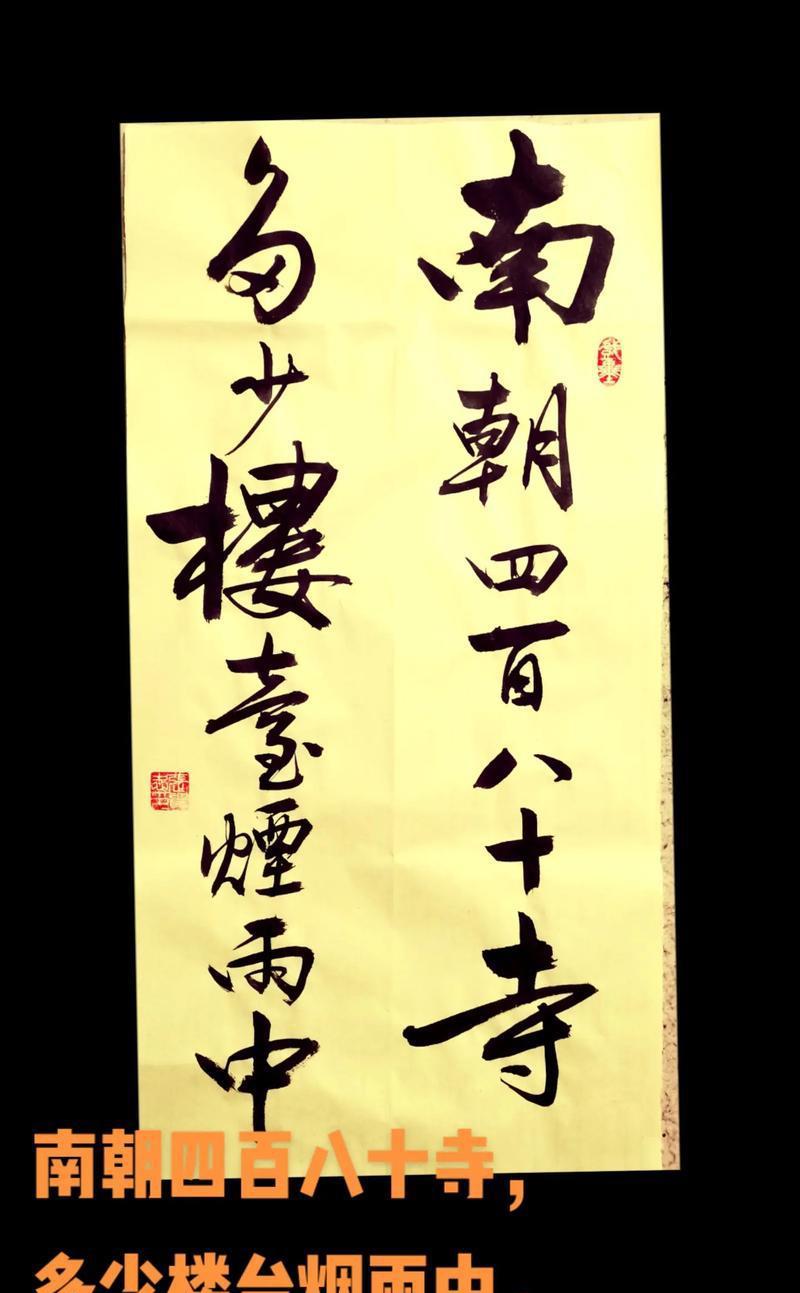 南朝四百八十寺
多少樓臺煙雨中
南朝四百八十寺，
多少楼台烟雨中